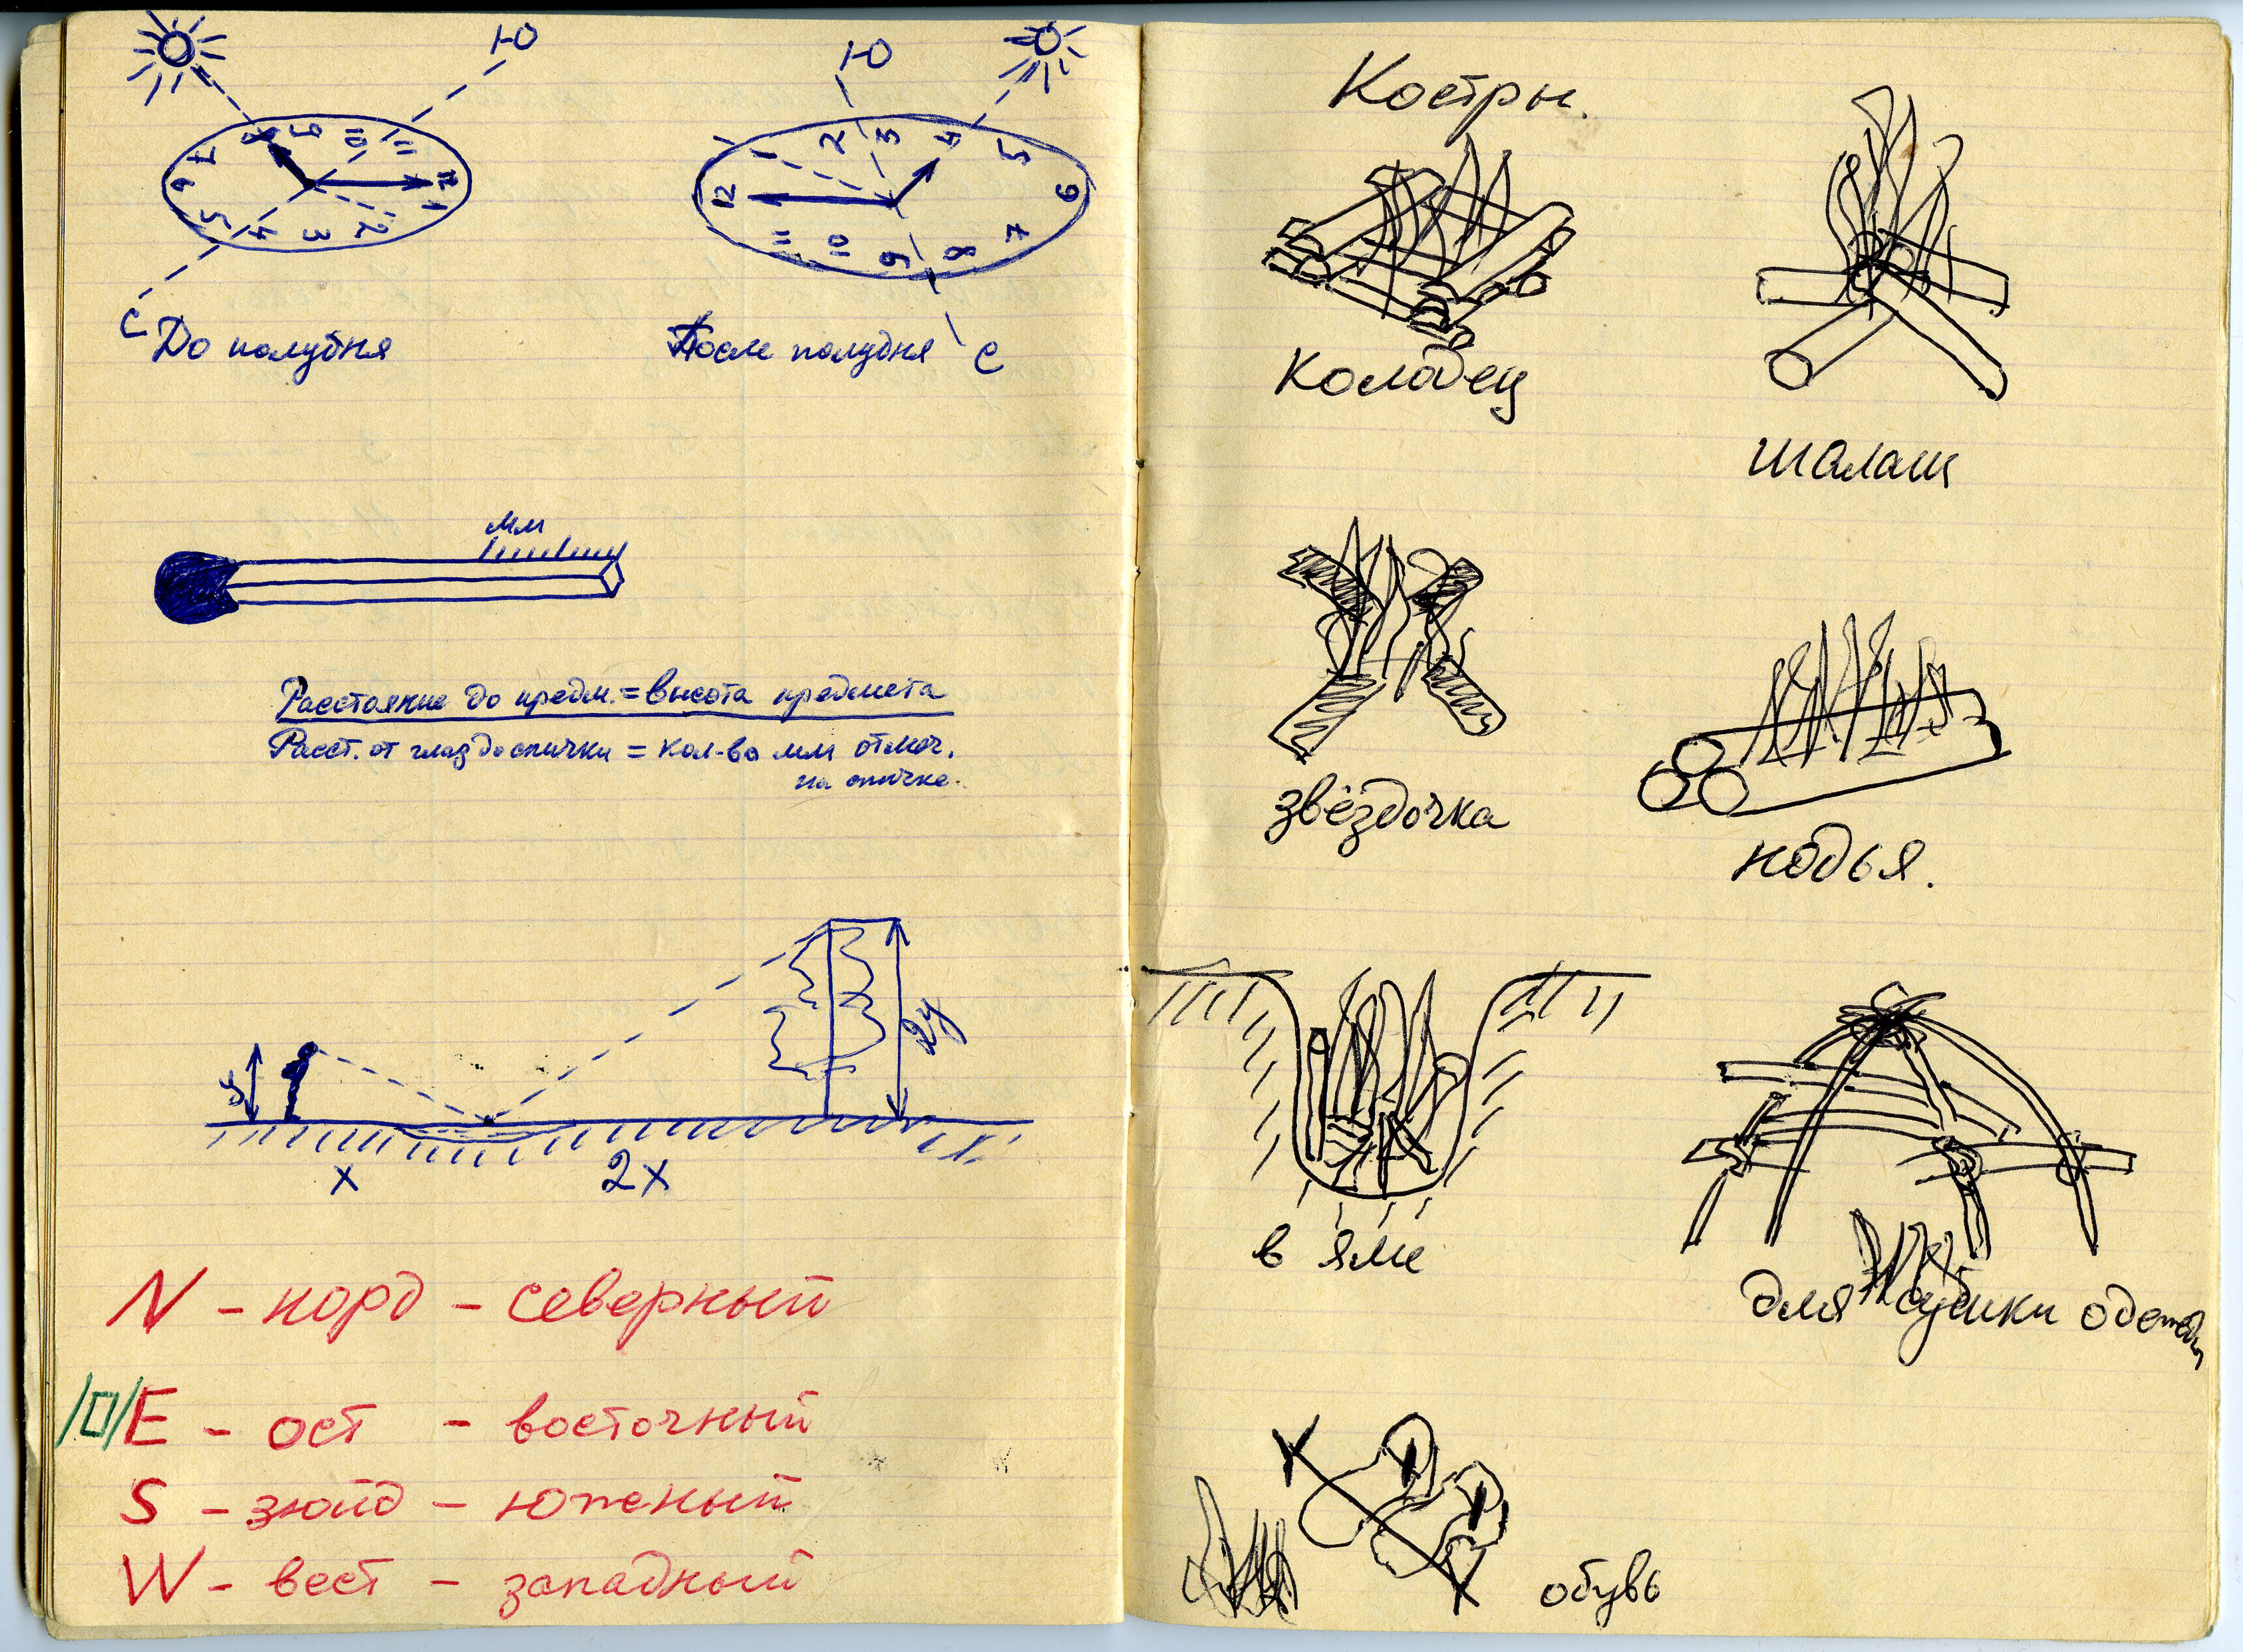 Ю
Ю
8 9 10 11 12 1 2 3 4 5 6 7
12 2 3 4 5 6 7 8 9 10 11
С
До полудня
После полудня
С
мм
Расстояние до предм. = высота предмета
Расст. от глаз до спички = кол-во мм отмеч.
на спичке.
у
2у
х
2х
N - норд - северный
/О/E - ост - восточный
S - зюйд - южный
W - вест - западный
Костры.
Колодец
шалаш
звёздочка
нодья.
в яме
для сушки одежды
обувь